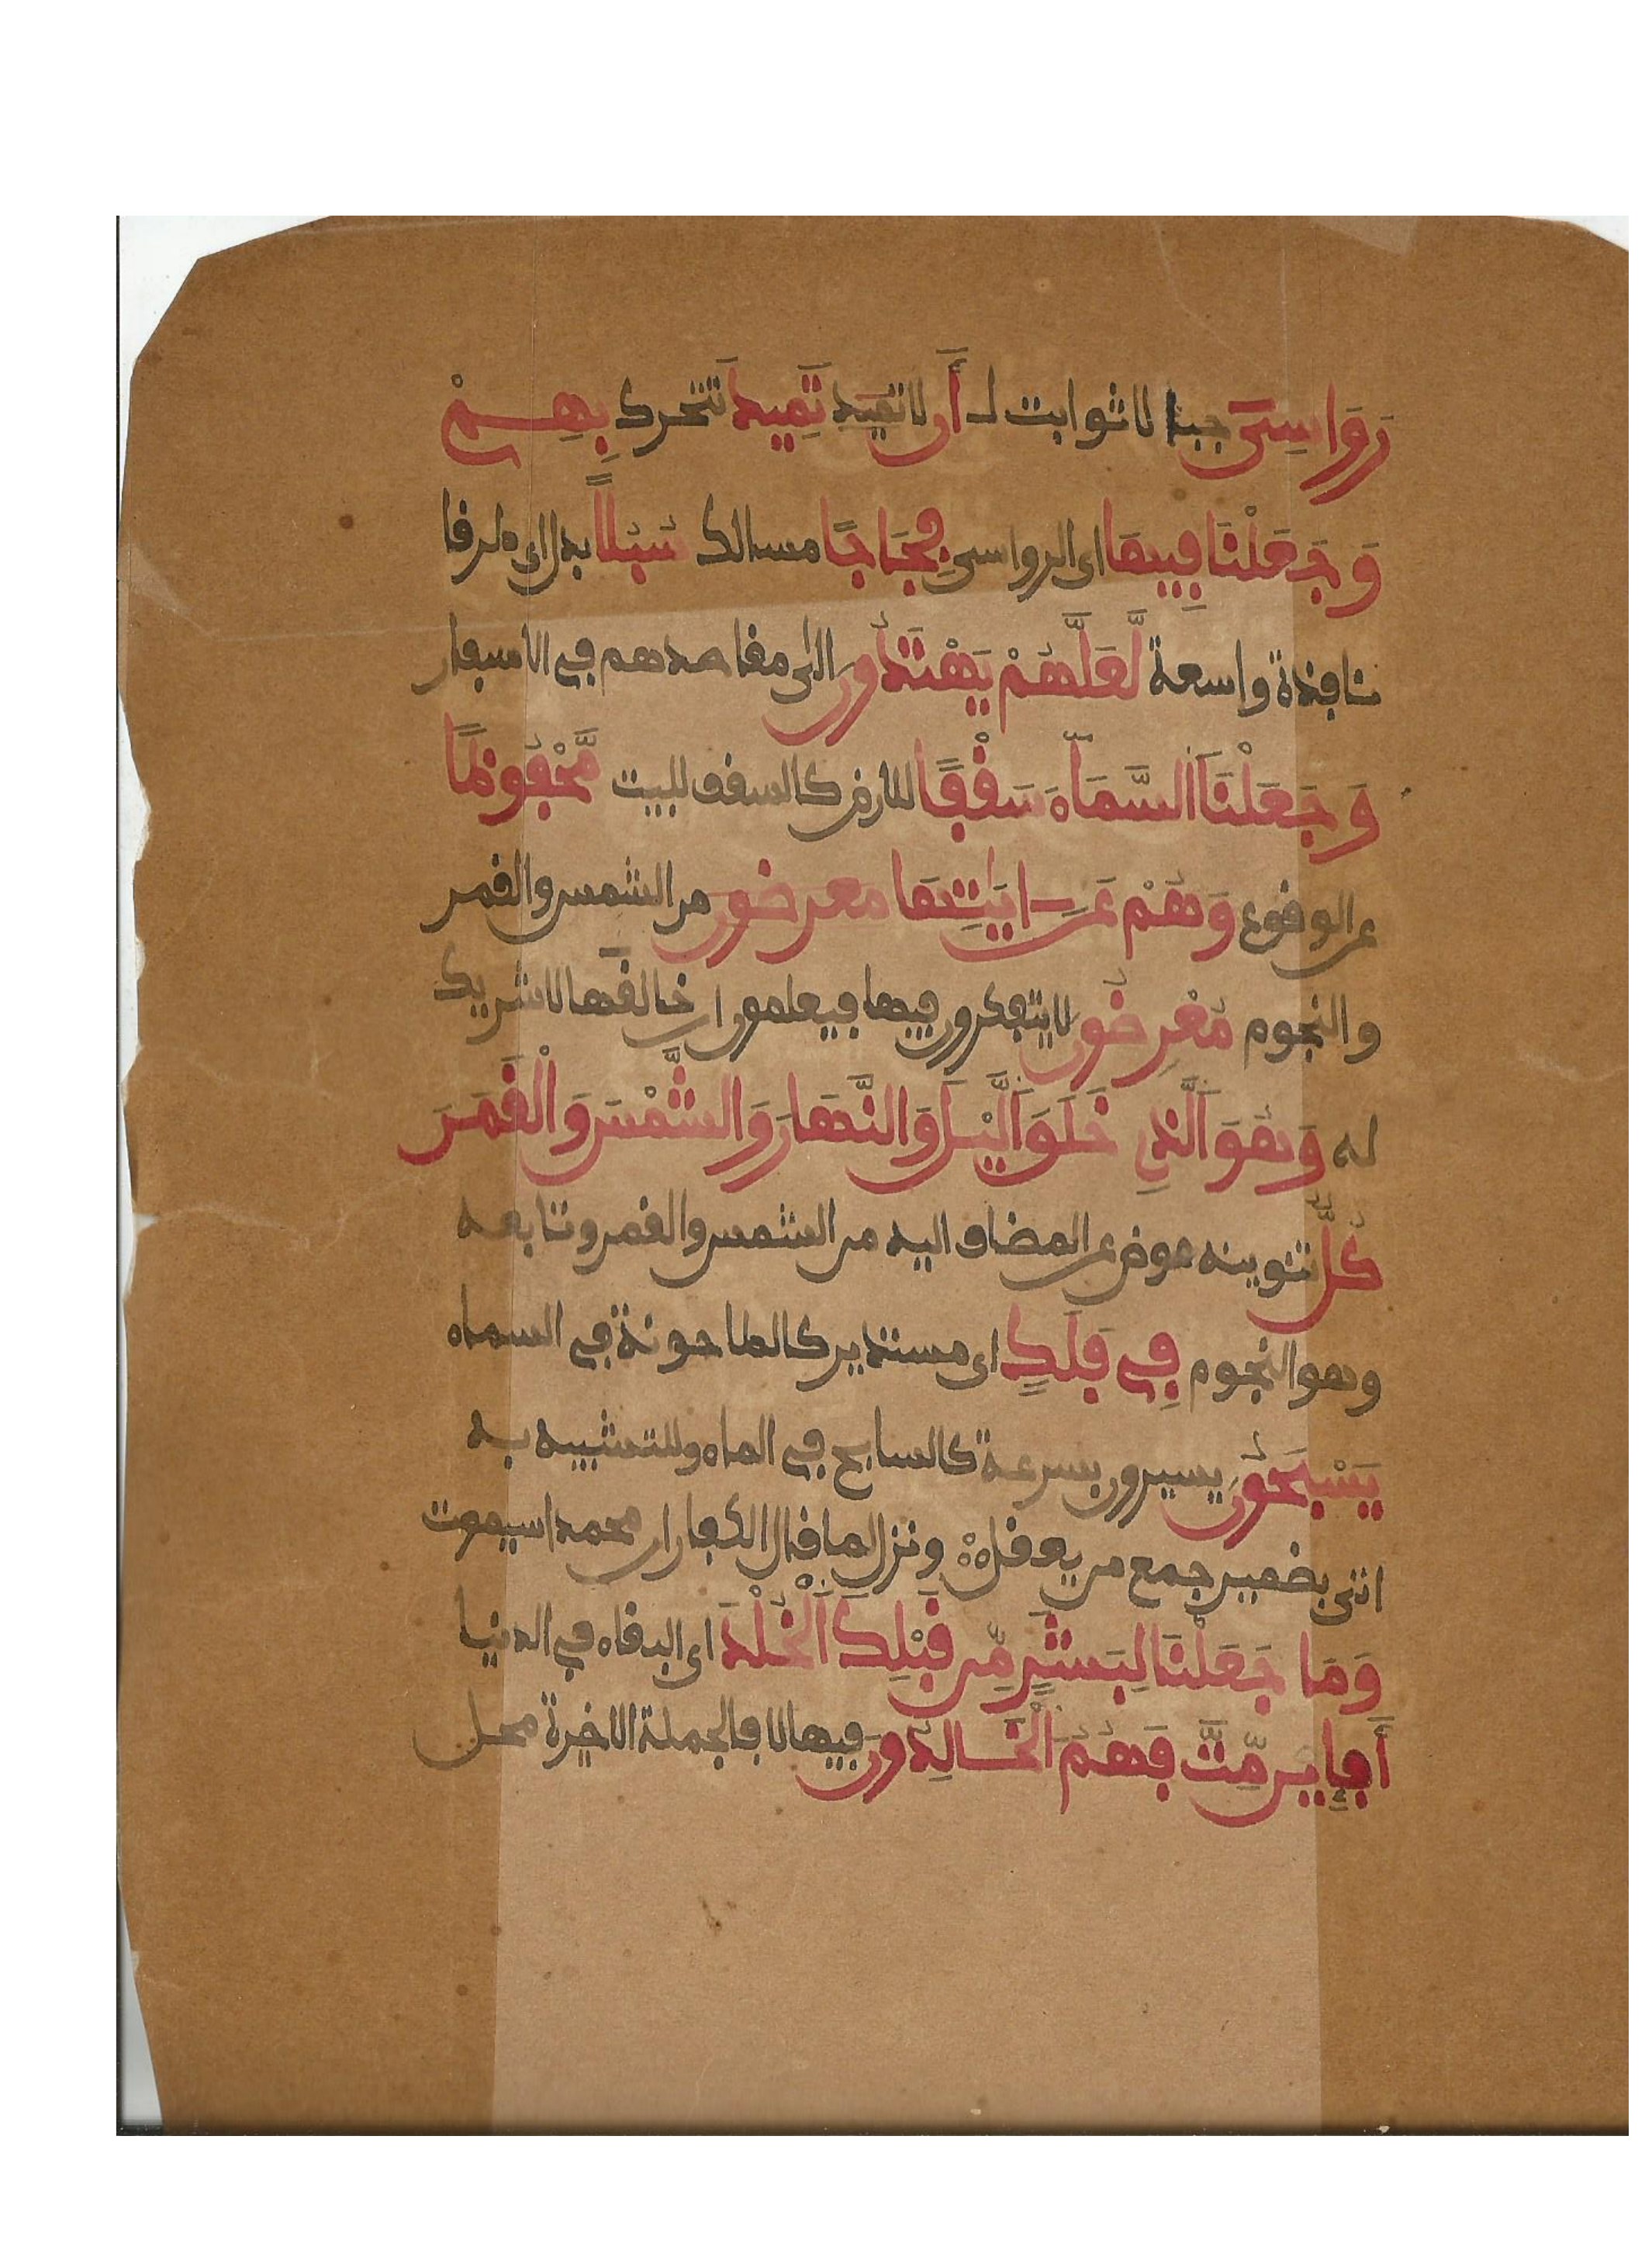 رَوَاسِىَ جبالا ثوابت لـ أَن لا تميد تَمِيدَ تتحرك بِهِمْ
وَجَعَلْنَا فِيهَا اى الرواسى فِجَاجًا مسالك سُبُلًا بدل اى طرفا
نافذة واسعة لَّعَلَّهُمْ يَهْتَدُونَ الى مقاصدهم في الاسفار
وَجَعَلْنَا اَلسَّمَآءَ سَقْفًا للارض كالسقف للبيت مَّحْفُوظًا
عن الوقوع وَهُمْ عَنَ ايَٰتِهَا معرضون من الشمس والقمر
والنجوم مُعْرِضُونَ لا يتفكرون فيها فيعلمون ان خالقها لا شريك
له وَهُوَ اَلَّذِي خَلَقَ اَلَّيْلَ وَالنَّهَارَ وَالشَّمْسَ وَالْقَمَرَ
كُلٌّ تنوينه عوض عن المضاف اليه من الشمس والقمر وتابعه
وهو النجوم فِي فَلَكٍ اى مستدير كالطاحونة في السماء
يَسْبَحُونَ يسيرون بسرعة كالسابح في الماء وللتشبيه به
اتى بضمير جمع من يعقل ونزل لما قال الكفار ان محمدا سيموت
وَمَا جَعَلْنَا لِبَشَرٍ مِّن قَبْلِكَ اَلْخُلْدَ اى البقاء في الدنيا
أَفَإِيْن مِّتَّ فَهُمُ اَلْخَالِدُونَ فيها لا فالجملة الاخيرة محل